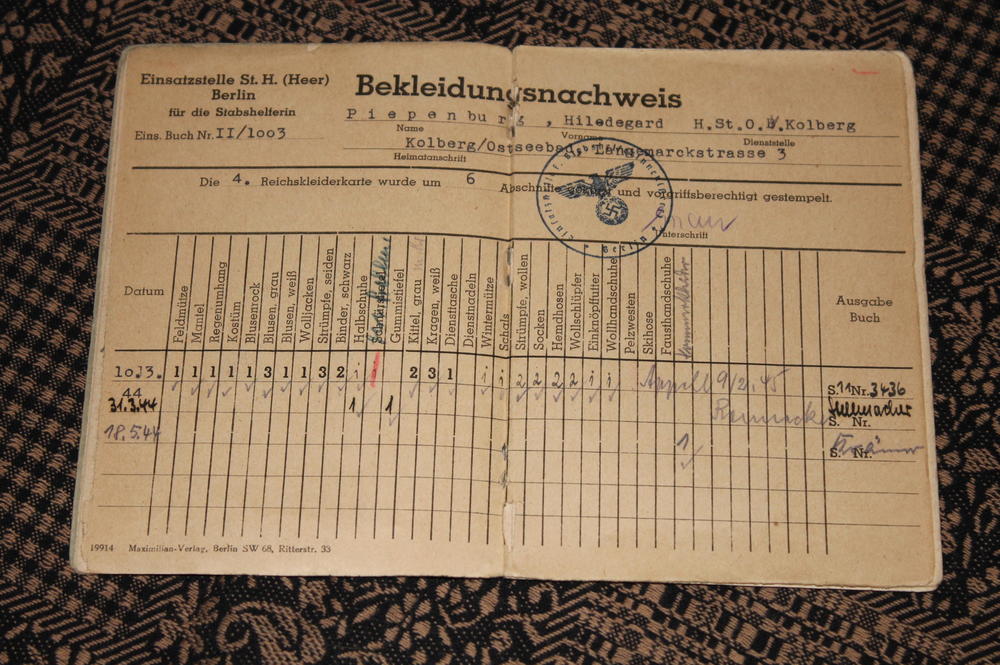 Einsatzstelle St. H. (Heer)
Berlin
für die Stabshelferin
Eins. Buch Nr. II/1003
Bekleidungsnachweis
Piepenburg, Hildegard H.St.O.W.Kolberg
Name Vorname Dienststelle
Kolberg/Ostseebad, Langemarckstrasse 3
Heimatanschrift
Die 4. Reichskleiderkarte wurde um 6 Abschnitte und vorgriffsberechtigt gestempelt.
Unterschrift
Berlin
Datum
Feldmütze
Mantel
Regenumhang
Kostüm
Blusenrock
Blusen, grau
Blusen, weiß
Wolljacken
Strümpfe, seiden
Binder, schwarz
Halbschuhe
Gummistiefel
Kittel, grau
Kragen, weiß
Diensttasche
Dienstnadeln
Wintermütze
Schals
Strümpfe, wollen
Socken
Hemdhosen
Wollschlüpfer
Einknöpffutter
Wollhandschuhe
Pelzwesten
Skihose
Fausthandschuhe
Ausgabe
Buch
10.3. 1 1 1 1 1 3 1 1 3 2 1 2 3 1 1 1 2 2 2 2 1 1 Appell 9/2.45 S. 11 Nr. 3436
44
31.3.44 1 1 S. Nr.
18.5.44 1 S. Nr.
19914 Maximilian-Verlag, Berlin SW 68, Ritterstr. 33